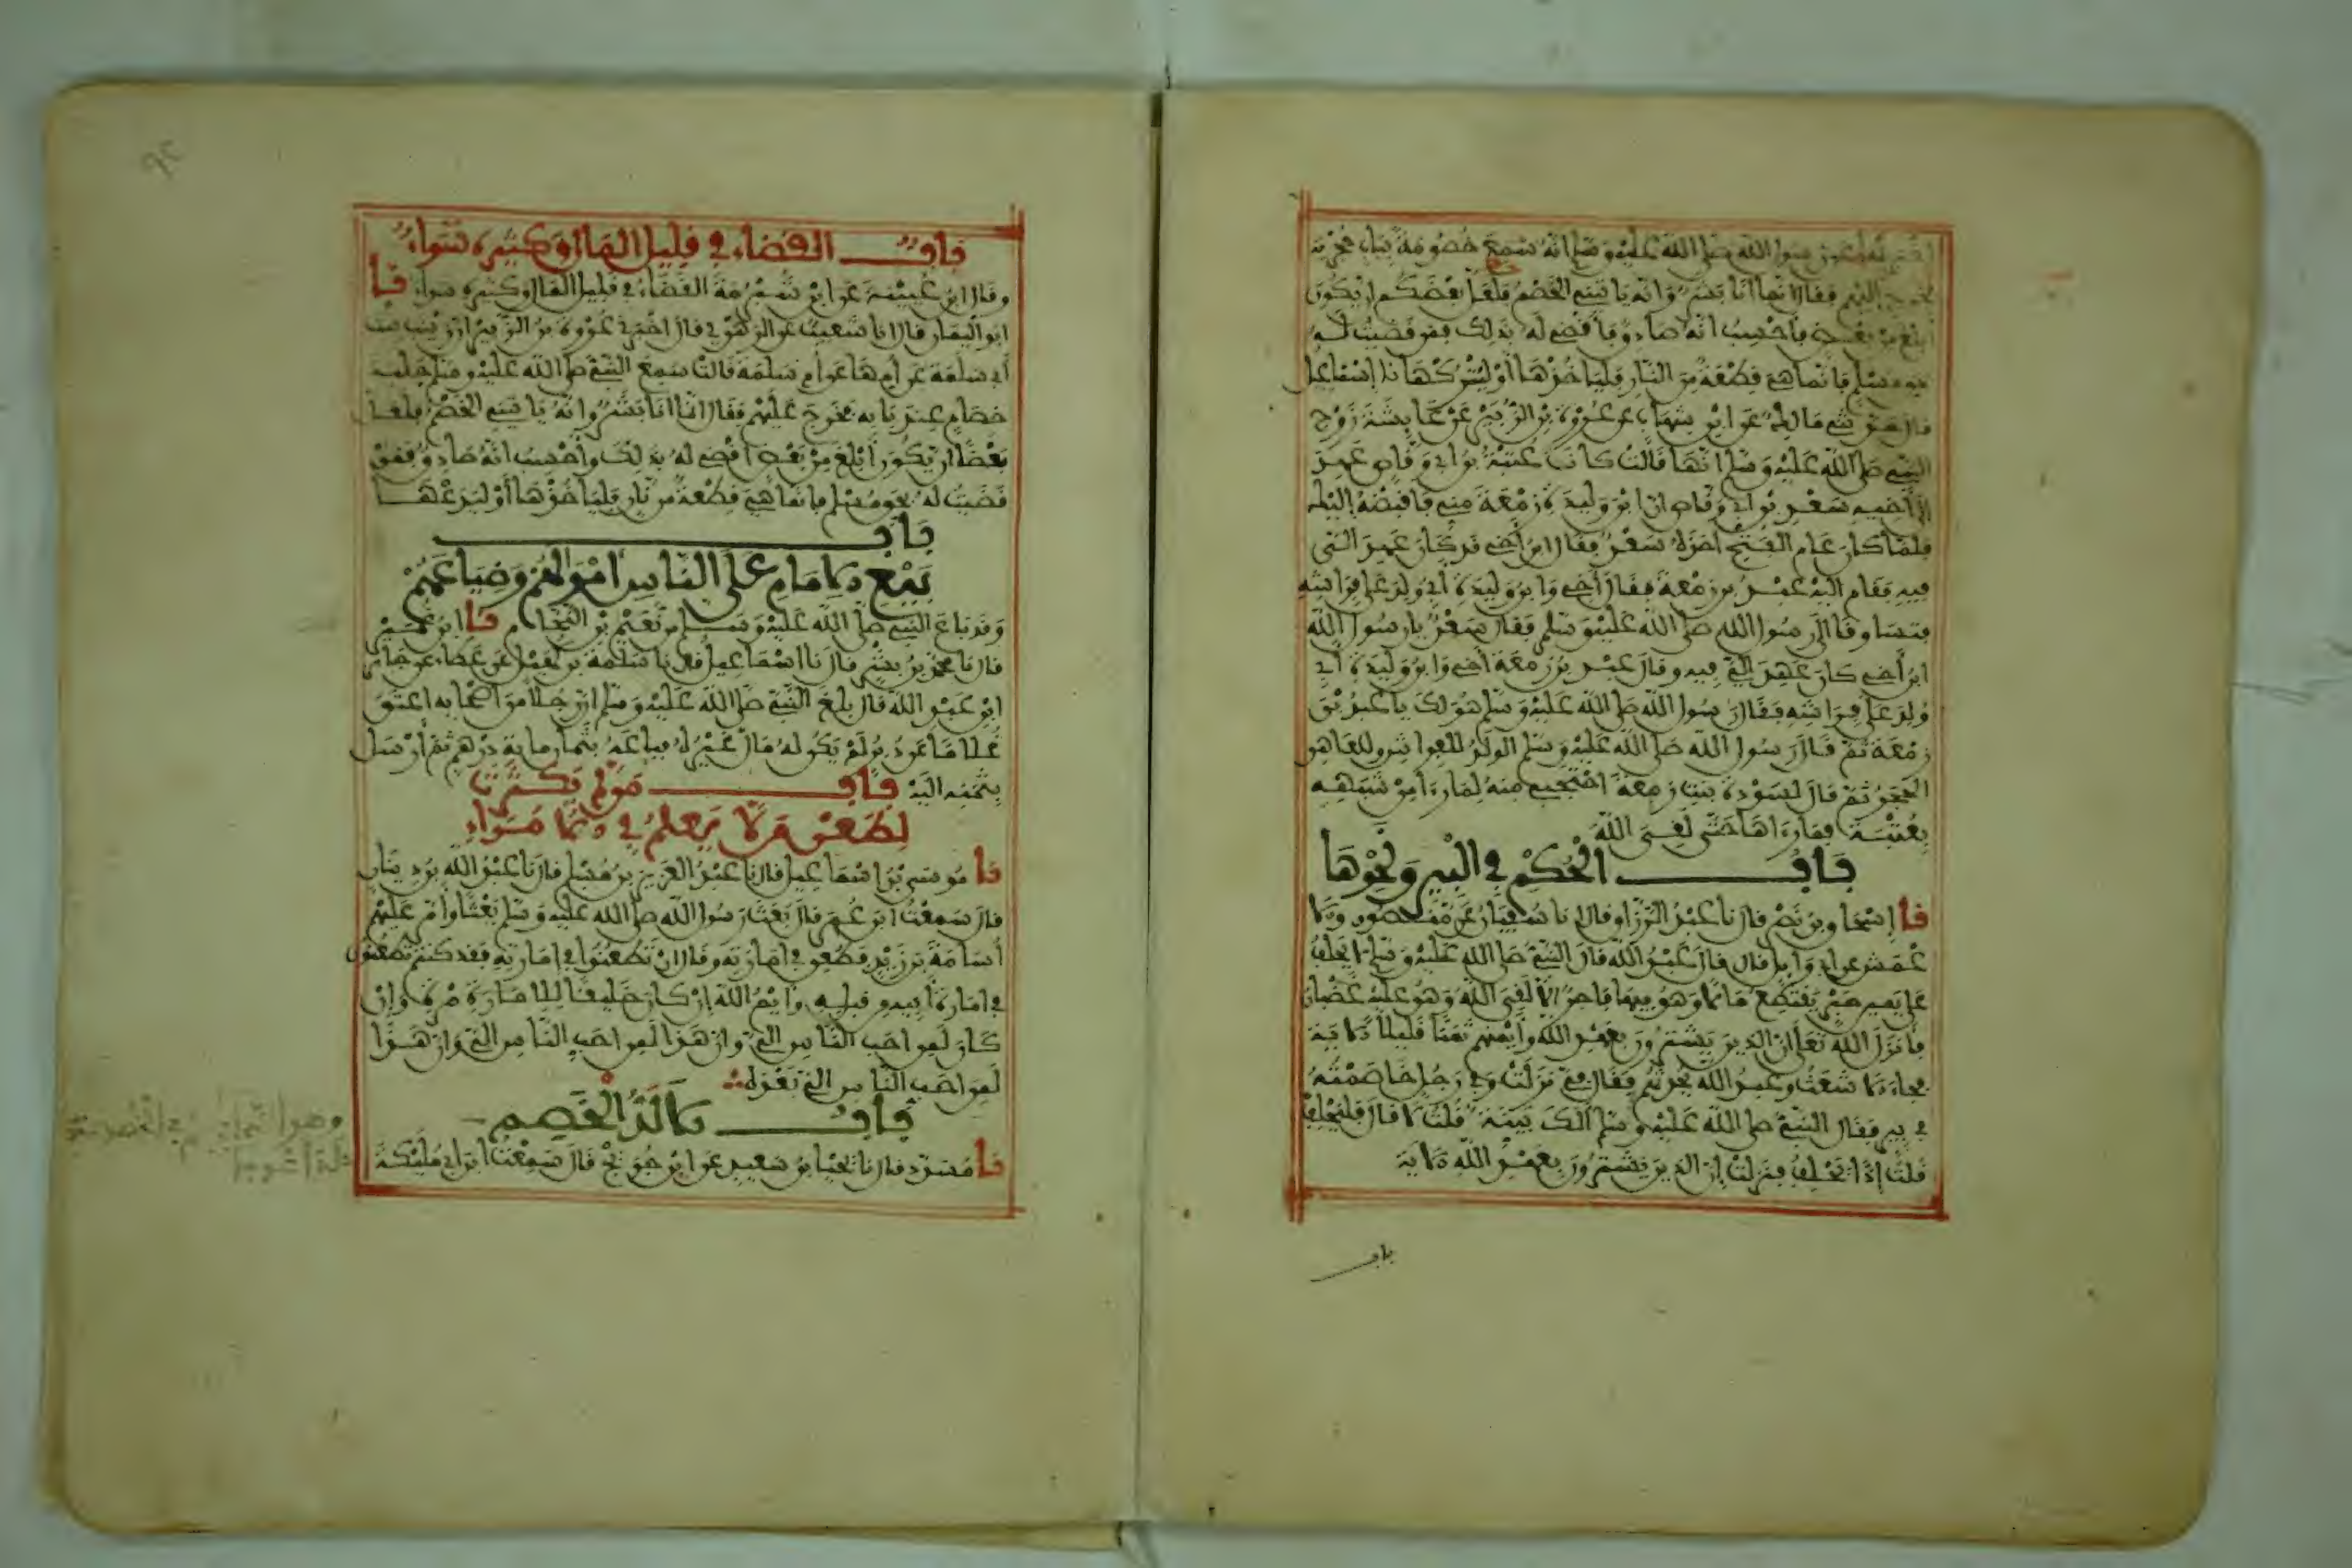 اخبرتها عن رسول الله صلى الله عليه وسلم انه سمع خصومة بباب حجرته
فخرج اليهم فقال انما انا بشر وانه ياتيني الخصم فلعل بعضكم ان يكون
ابلغ من بعض فاحسب انه صادق فاقضي له بذلك فمن قضيت له
بحق مسلم فانما هي قطعة من النار فلياخذها أو ليتركها نا إسماعيل
قال حدثني مالك عن ابن شهاب عن عروة بن الزبير عن عايشة زوج
النبي صلى الله عليه وسلم انها قالت كان عتبة بن ابي وقاص عهد
الى أخيه سعد بن ابي وقاص ان ابن وليدة زمعة مني فاقبضه إليك
فلما كان عام الفتح اخذه سعد فقال ابن أخي قد كان عهد الي
فيه فقام اليه عبد بن زمعة فقال أخي وابن وليدة أبي ولد على فراشه
فتساوقا الى رسول الله صلى الله عليه وسلم فقال سعد يا رسول الله
ابن أخي كان عهد الي فيه وقال عبد بن زمعة أخي وابن وليدة أبي
ولد على فراشه فقال رسول الله صلى الله عليه وسلم هو لك يا عبد بن
زمعة ثم قال رسول الله صلى الله عليه وسلم الولد للفراش وللعاهر
الحجر ثم قال لسودة بنت زمعة احتجبي منه لما رءا من شبهه
بعتبة فما رءاها حتى لقي الله
باب الحكم في البير ونحوها
نا إسحاق بن نصر قال نا عبد الرزاق قال انا سفيان عن منصور والا
عمش عن ابي وايل قال قال عبد الله قال النبي صلى الله عليه وسلم لا يحلف
على يمين صبر يقتطع مالا وهو فيها فاجر الا لقي الله وهو عليه غضبان
فانزل الله تعلى ان الذين يشترون بعهد الله وأيمنهم ثمنا قليلا الاية
فجاء الاشعث وعبد الله يحدثهم فقال في نزلت وفي رجل خاصمته
في بير فقال النبي صلى الله عليه وسلم ألك بينة قلت لا قال فليحلف
قلت إذا يحلف فنزلت إن الذين يشترون بعهد الله الاية
باب
باب القضاء في قليل المال وكثيره سواء
وقال ابن عيينة عن ابن شبرمة القضاء في قليل المال وكثيره سواء نا
ابو اليمان قال انا شعيب عن الزهري قال اخبرني عروة بن الزبير ان زينب بنت
أبي سلمة عن أمها عن أم سلمة قالت سمع النبي صلى الله عليه وسلم جلبة
خصام عند بابه فخرج عليهم فقال انما انا بشر وانه ياتيني الخصم فلعل
بعضا ان يكون أبلغ من بعض أقضي له بذلك وأحسب انه صادق فمن
قضيت له بحق مسلم فانما هي قطعة من نار فلياخذها أو ليدعها
باب
بيع الامام على الناس أموالهم وضياعهم
وقد باع النبي صلى الله عليه وسلم من نعيم بن النحام نا ابن نمير
قال نا محمد بن بشر قال نا اسماعيل قال نا سلمة بن كهيل عن عطاء عن جابر
ابن عبد الله قال بلغ النبي صلى الله عليه وسلم ان رجلا من اصحابه اعتق
غلاما عن دبر لم يكن له مال غيره فباعه بثمان ماية درهم ثم أرسل
بثمنه اليه باب من لم يكترث
لطعن من لا يعلم في الامراء
نا موسى بن اسماعيل قال نا عبد العزيز بن مسلم قال نا عبد الله بن دينار
قال سمعت ابن عمر قال بعث رسول الله صلى الله عليه وسلم بعثا وأمر عليهم
أسامة بن زيد فطعن في امارته وقال ان تطعنوا في امارته فقد كنتم تطعنون
في امارة أبيه من قبله وايم الله ان كان خليقا للامارة وإن
كان لمن احب الناس الي وان هذا لمن احب الناس الي وان هذا
لمن احب الناس الي بعده
باب الالد الخصم
نا مسدد قال نا يحيا بن سعيد عن ابن جريج قال سمعت ابن ابي مليكة
وهو الدايم في الخصومة